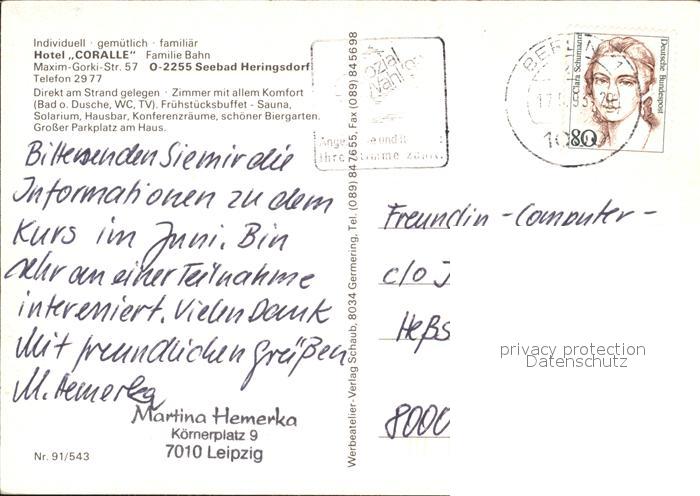 Individuell · gemütlich · familiär
Hotel „CORALLE" Familie Bahn
Maxim-Gorki-Str. 57 O-2255 Seebad Heringsdorf
Telefon 29 77
Direkt am Strand gelegen · Zimmer mit allem Komfort
(Bad o. Dusche, WC, TV). Frühstücksbuffet - Sauna,
Solarium, Hausbar, Konferenzräume, schöner Biergarten.
Großer Parkplatz am Haus.
Bitte senden Sie mir die
Informationen zu dem
Kurs im Juni. Bin
sehr an einer Teilnahme
interessiert. Vielen Dank
Mit freundlichen Grüßen
M. Hemerka
Martina Hemerka
Körnerplatz 9
7010 Leipzig
Nr. 91/543
Werbeatelier-Verlag Schaub, 8034 Germering, Tel. (089) 847655, Fax (089) 845698
ozial
wahlen
BERLIN
80
Clara Schumann
Deutsche Bundespost
Freundin - Computer -
c/o J
Heßs
8000
privacy protection
Datenschutz